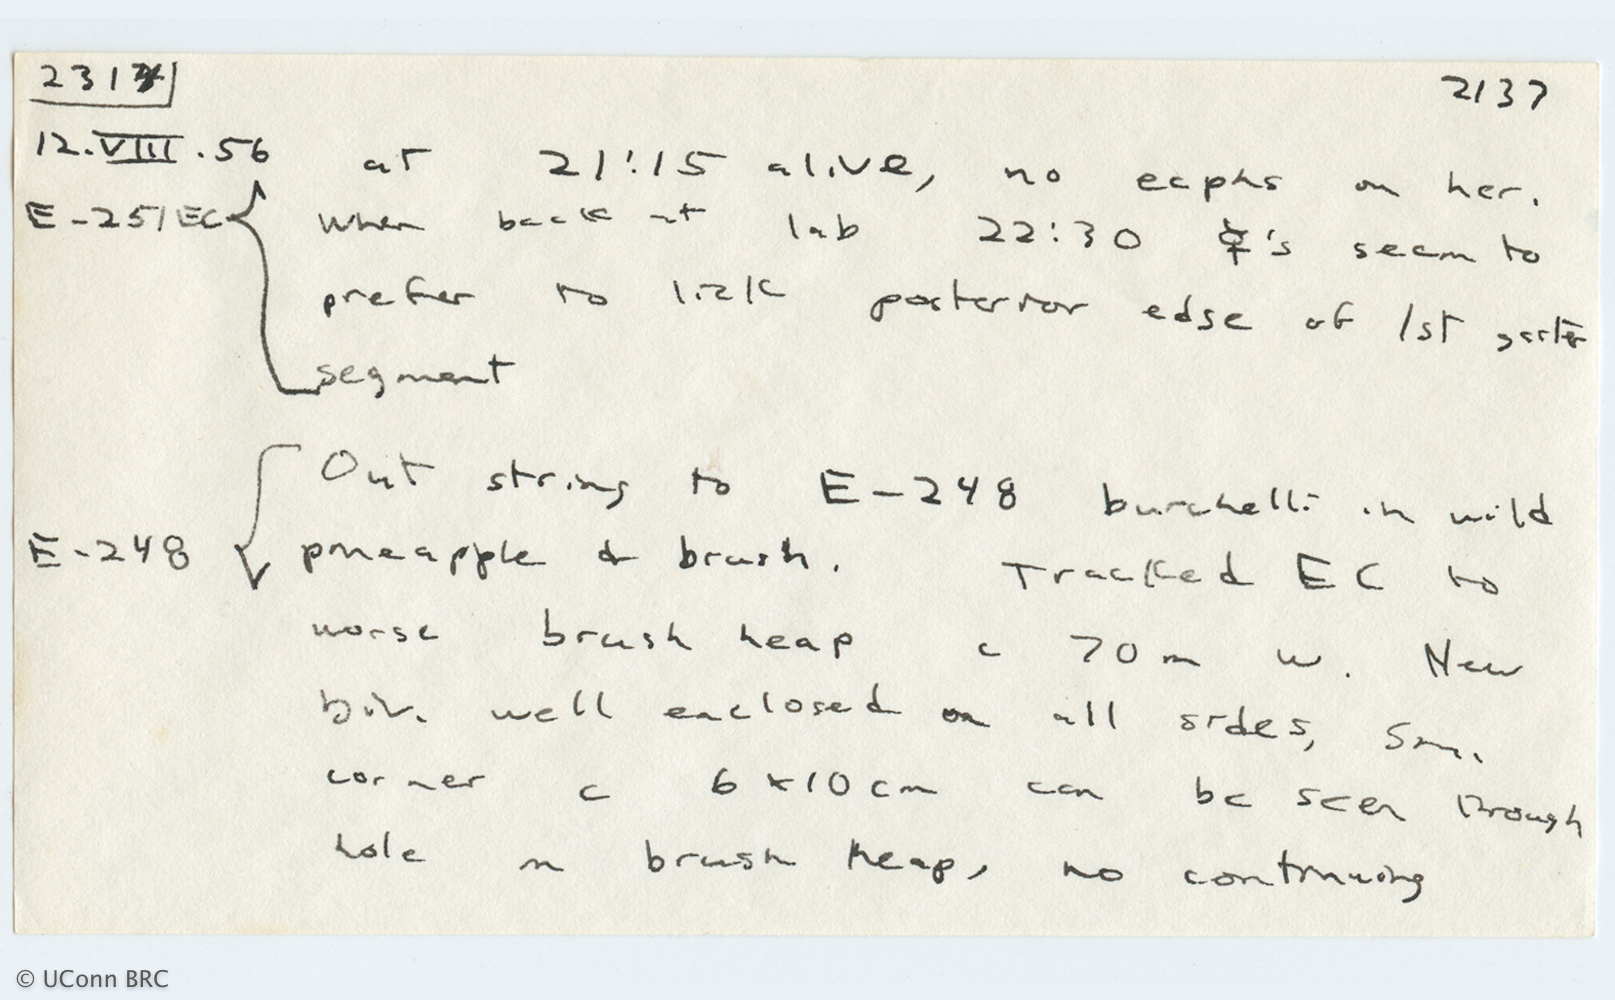 2314
2137
12.VIII.56 at 21:15 alive, no ecphs on her.
E-251EC When back at lab 22:30 ☿'s seem to
prefer to lick posterior edge of 1st gaster
segment
Out string to E-248 burchelli in wild
E-248 pineapple & brush. Tracked EC to
worse brush heap c 70m w. New
biv. well enclosed on all sides, sm.
corner c 6x10cm can be seen through
hole in brush heap, no continuing
© UConn BRC